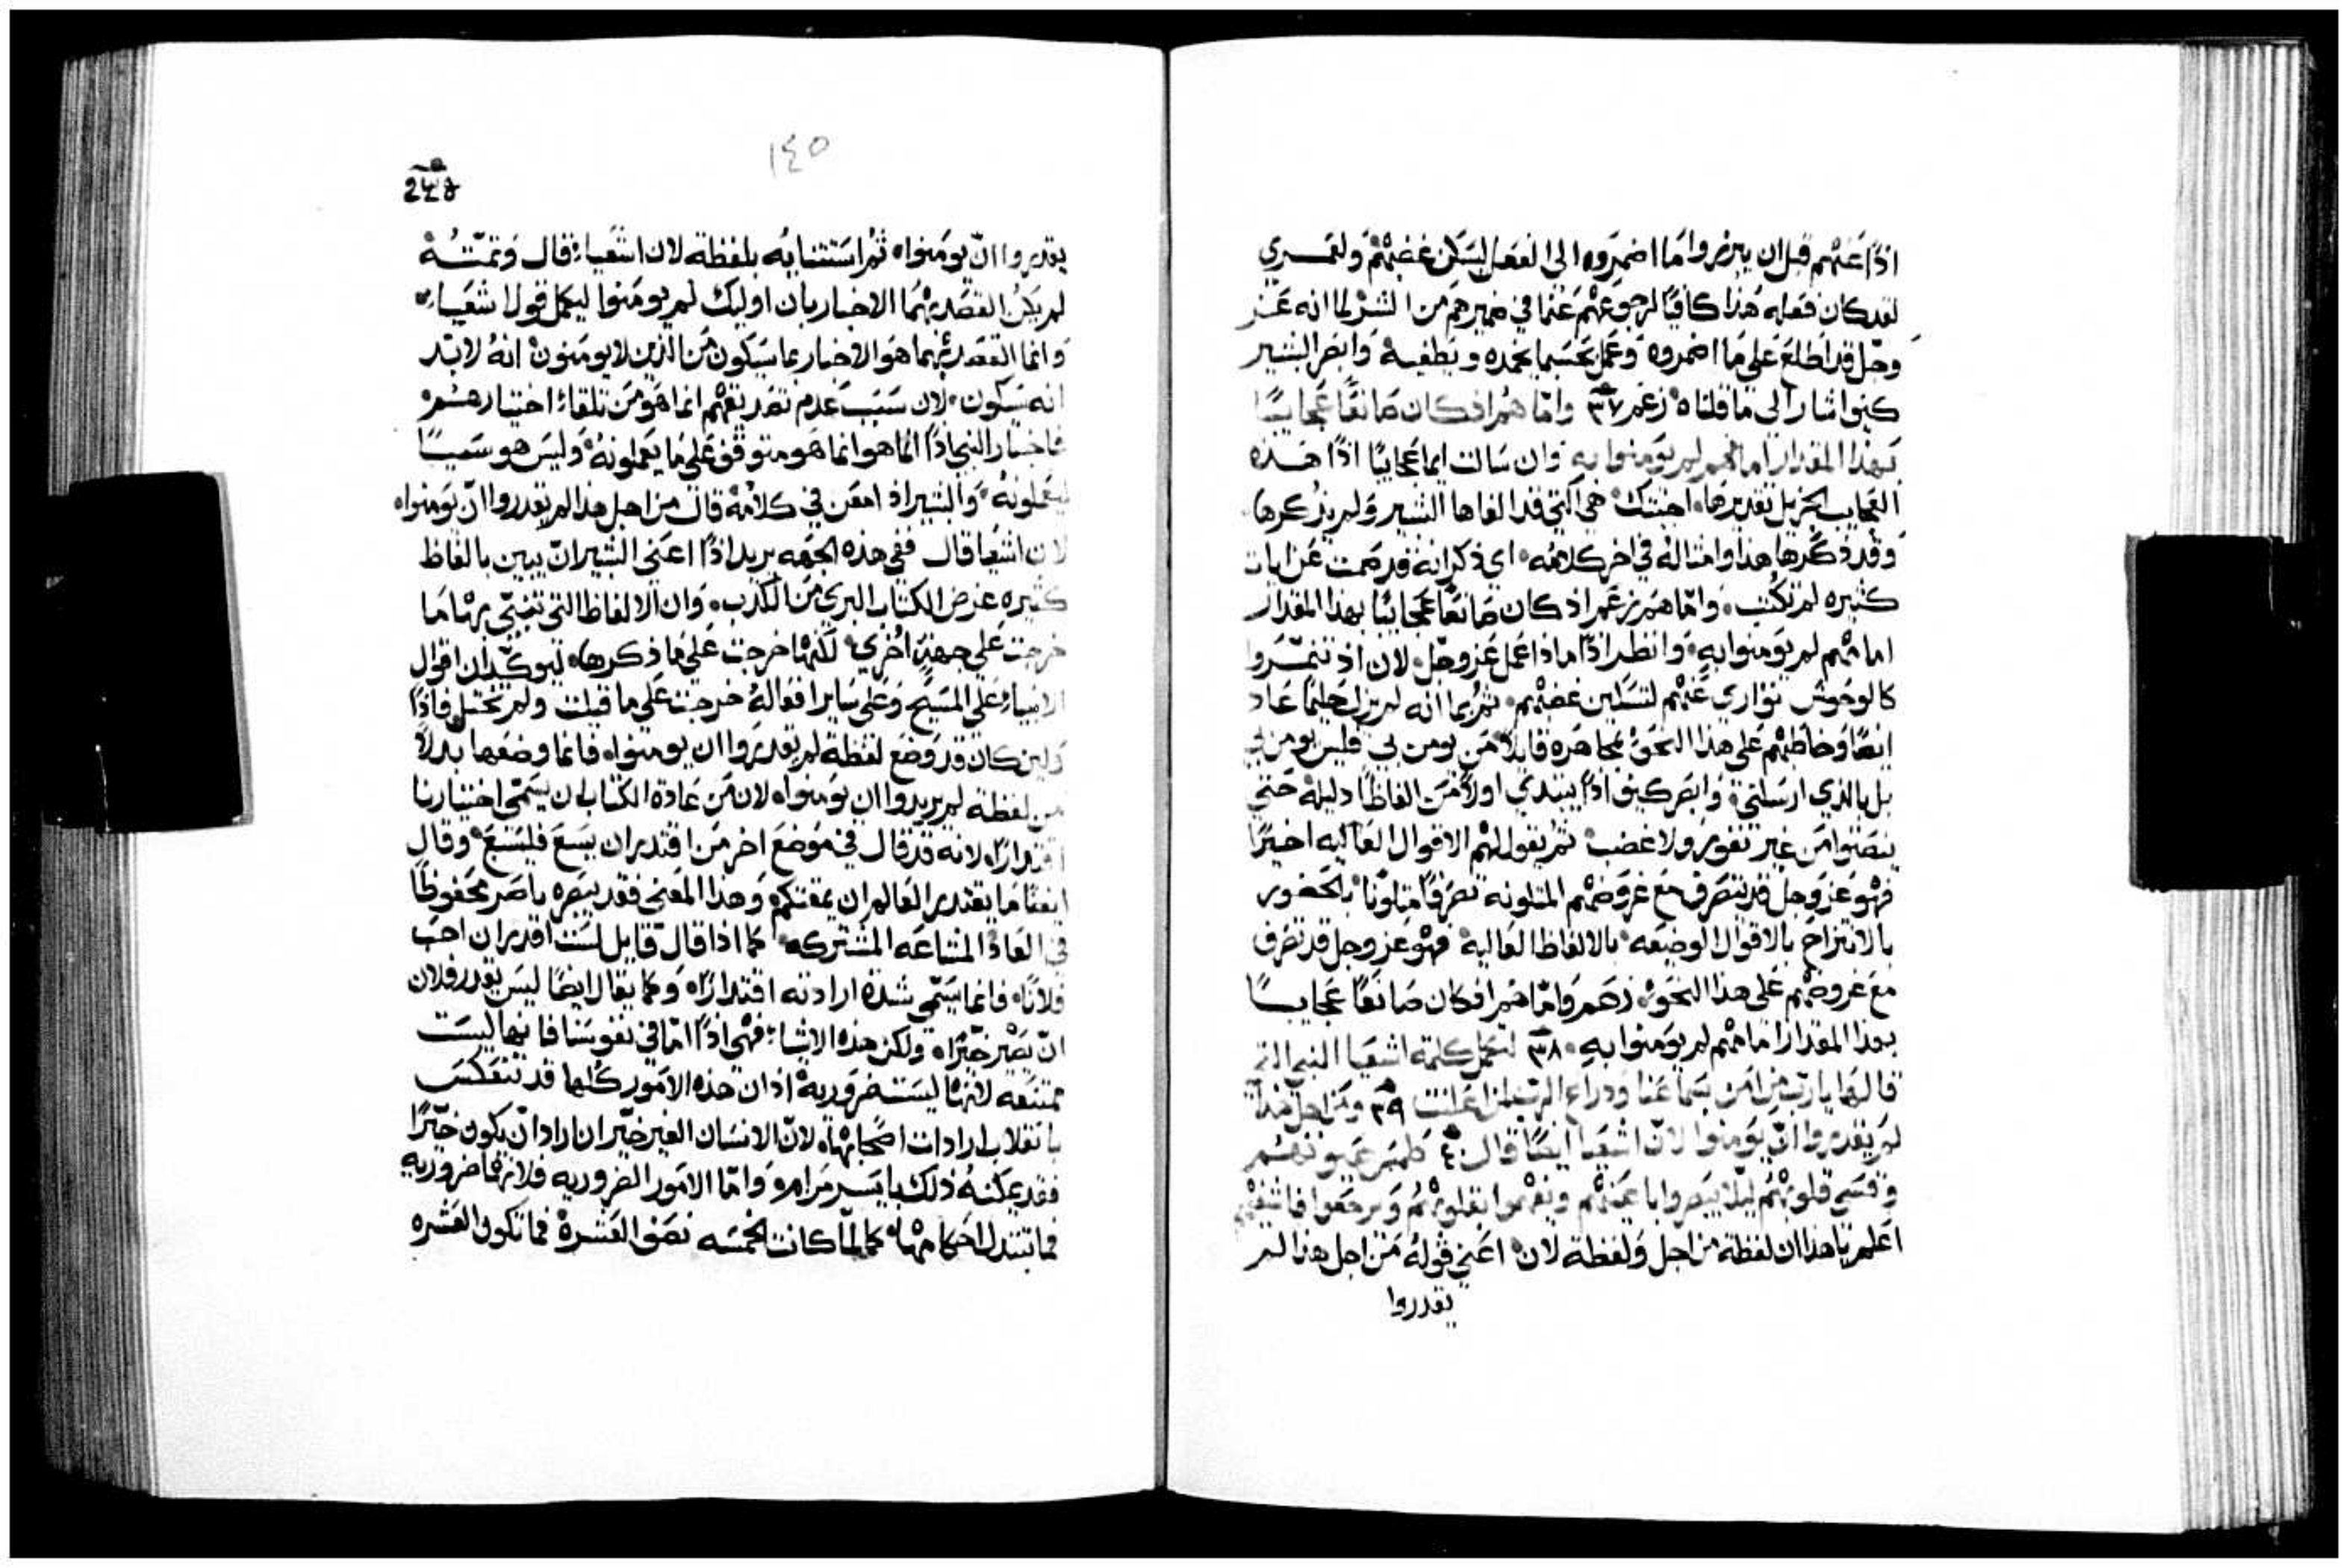 اذًا عنهم قبل ان يبرزوا ما اضمروه الى الفعل ليسكن غضبهم ولعمري
لقد كان فعله هذا كافيًا لرجوعهم عما في ضميرهم من الشر لما انه عز
وجل قد اطلع على ما اضمروه وعمل بحسبما يخمده ويطفيه وابصر البشير
كيف اشار الى ما قلناه زعم ٣٧ وامّا هم اذ كان صانعًا عجايبًا
بهذا المقدار امامهم لم يومنوا به وان سالت ايما عجايبًا اذًا هذه
العجايب الجزيل تقديرها اجبتك هي التي قد الغاها البشير ولم يذكرها
وقد ذكرها هذا وامثاله في اخر كلامه اي ذكر انه قد صمت عن ايات
كثيره لم تكتب وامّا هم زعم اذ كان صانعًا عجائبًا بهذا المقدار
امامهم لم يومنوا به وانظر اذًا ماذا عمل عز وجل لان اذ تنمّروا
كالوحوش توارى عنهم لتسكين غضبهم ثم بما انه لم يزل حليمًا عاد
ايضًا وخاطبهم على هذا النحو مجاهره قايلًا من يومن بي فليس يومن بي
بل بالذي ارسلني وابصر كيف اذًا يبتدي اولًا من الفاظًا دليله حتى
ينصتوا من غير نفور ولا غضب ثم يقول لهم الاقوال العاليه اخيرًا
فهو عز وجل قد تصرف مع غروضهم المتلونه تصرفًا متلونًا بالحضور
بالانتزاح بالاقوال الوضيعه بالالفاظ العاليه فهو عز وجل قد تصرف
مع غروضهم على هذا النحو زعم وامّا هم اذ كان صانعًا عجايبًا
بهذا المقدار امامهم لم يومنوا به ٣٨ لتكمل كلمة اشعيا النبي التي
قالها يا رب من امن بسماعنا وذراع الرب لمن اعلنت ٣٩ ومن اجل هذا
لم يقدروا انّ يومنوا لانّ اشعيا ايضًا قال ٤٠ طمس عيونهم
وقسى قلوبهم ليلا يبصروا باعينهم ويفهموا بقلوبهم ويرجعوا فاشفيهم
اعلم يا هذا ان لفظة من اجل ولفظة لان اعني قوله من اجل هذا لم
يقدروا
١٤٥
يقدروا انّ يومنوا ثم استثنايه بلفظة لان اشعياء قال وتمتّه
لم يكن القصد بهما الاخبار بان اوليك لم يومنوا ليكمل قول اشعياء
وانما القصد بهما هو الاخبار بما سيكون من الذين لا يومنون انهُ لابد
انه سيكون لان سبب عدم تصديقهم انما هو من تلقاء اختيارهم
فاخبار النبي اذًا انما هو متوقف على ما يعملونه وليس هو سببًا
ليعملونه والبشير اذ امعن في كلامه قال من اجل هذا لم يقدروا انّ يومنوا
لان اشعيا قال ففي هذه الجهه يريد اذًا اعني البشير انّ يبين بالفاظ
كثيره عرض الكتاب البري من الكذب وان الالفاظ التي تنبّى بها ما
خرجت على جهةٍ اخرى لكنها خرجت على ما ذكرها ليوكّد ان اقوال
الانبياء على المسيح وعلى ساير افعاله خرجت على ما قيلت ولم تختل فاذًا
ولين كان قد وضع لفظة لم يقدروا ان يومنوا فانما وضعها بدلًا
من لفظة لم يريدوا ان يومنوا لان من عادة الكتاب ان يسمّى اختيارنا
اقتدارًا لانه قد قال في موضع اخر من اقتدر ان يسع فليسع وقال
ايضًا ما يقتدر العالم ان يمقتكم وهذا المعنى فقد يبصره باصر محفوظًا
في العادة المشاعه المشتركه كما اذا قال قايل لست اقدر ان احب
فلانًا فانما يسمّي شدة ارادته اقتدارًا وكما يقال ايضًا ليس يقدر فلان
انّ يصير خيّرًا ولكن هذه الاشياء فهي اذًا امّا في نفوسنا فانها ليست
ممتنعه لانها ليست ضروريه اذ ان هذه الامور كلها قد تنعكس
بانقلاب ارادات اصحابها لانّ الانسان الغير خيّر ان اراد انّ يكون خيّرًا
فقد يمكنهُ ذلك بايسر مرامه وامّا الامور الضروريه فلانها ضروريه
فما تتبدل احكامها كما لمّا كانت الخمسه نصف العشرة فما تكون العشره